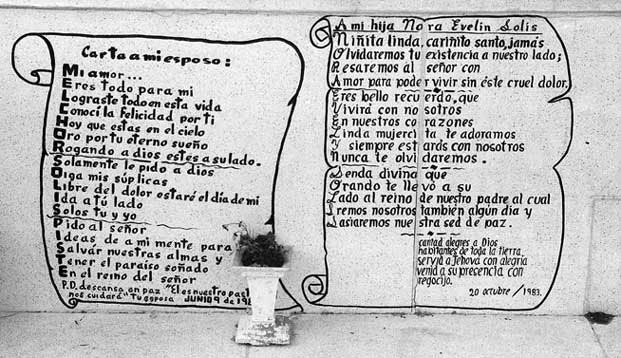 Carta a mi esposo:
Mi amor...
Eres todo para mi
Lograste todo en esta vida
Conocí la felicidad por ti
Hoy que estas en el cielo
Oro por tu eterno sueño
Rogando a dios estes a su lado.
Solamente le pido a dios
Oiga mis súplicas
Libre del dolor estaré el día de mi
Ida a tú lado
Solos tu y yo
Pido al señor
Ideas de a mi mente para
Salvar nuestras almas y
Tener el paraíso soñado
En el reino del señor
P.D. descansa en paz "El es nuestro
nos cuidará" Tu esposa JUNIO 9 de
A mi hija Nora Evelin Solis
Niñita linda, cariñito santo, jamás
Olvidaremos tu existencia a nuestro lado;
Resaremos al señor con
Amor para poder vivir sin éste cruel dolor.
Eres bello recuerdo, que
Vivirá con nosotros
En nuestros corazones
Linda mujercita te adoramos
Y siempre estarás con nosotros
Nunca te olvidaremos.
Senda divina que
Orando te llevó a su
Lado al reino de nuestro padre al cual
Iremos nosotros también algún día y
Lasiaremos nuestra sed de paz.
cantad alegres a Dios
habitantes de toga la tierra,
servid a Jehová con alegria
venid a su precencia con
regocijo.
20 octubre / 1983.